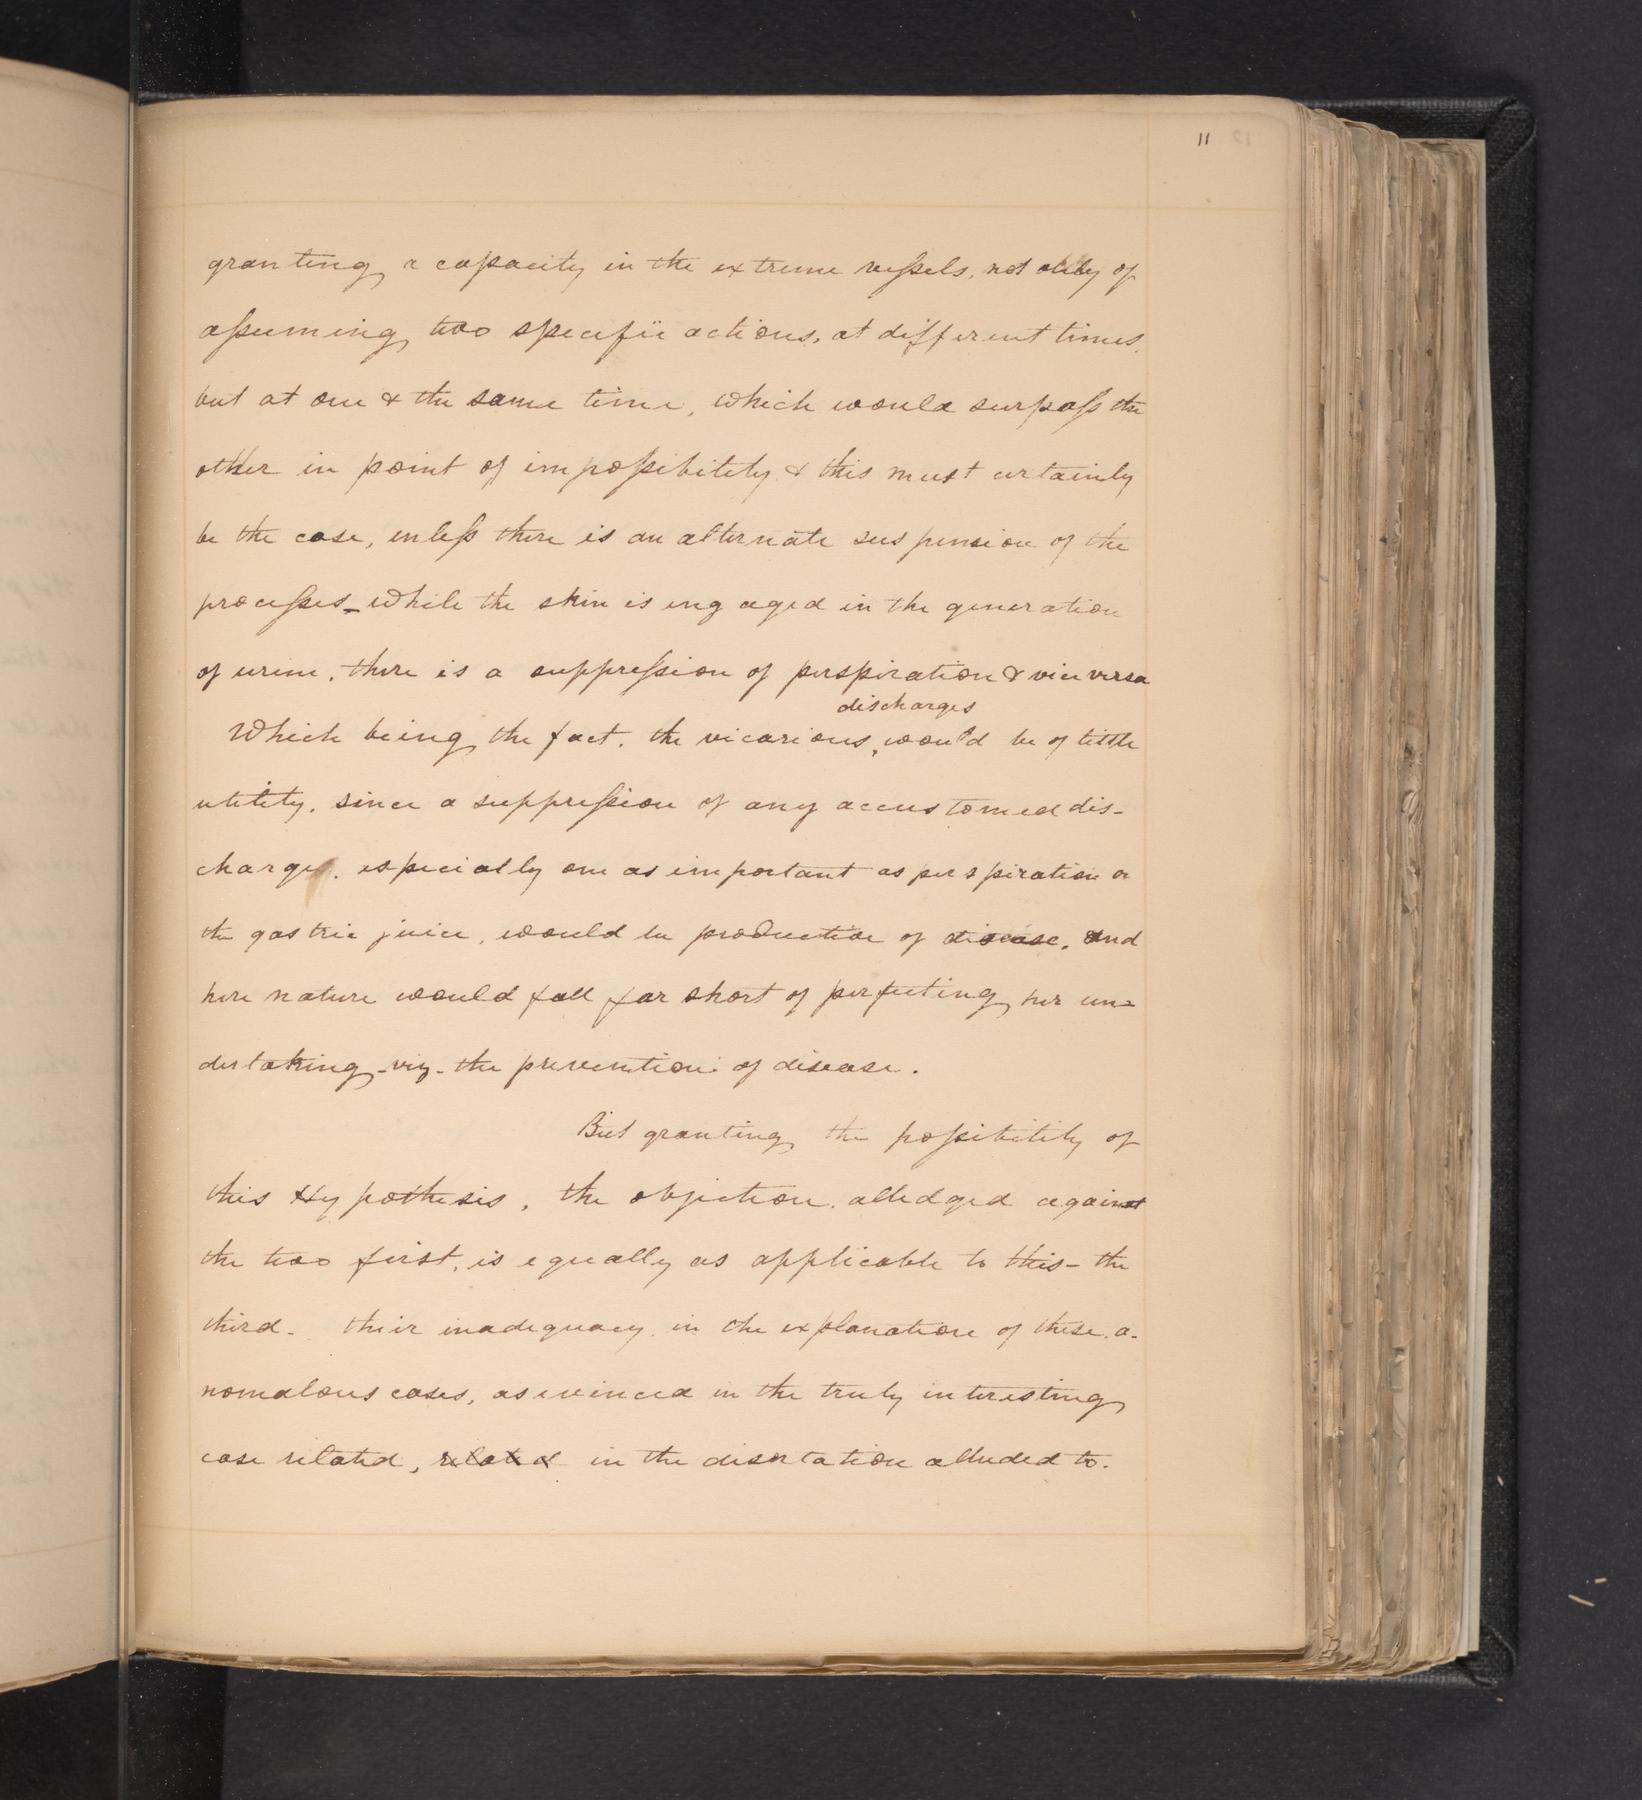 11
granting a capacity in the extreme vessels, not only of
assuming two specific actions, at different times,
but at one & the same time, which would surpass the
other in point of impossibility & this must certainly
be the case, unless there is an alternate suspension of the
processes - while the skin is engaged in the generation
of urine, there is a suppression of perspiration & vice versa
discharges
Which being the fact, the vicarious, would be of little
utility, since a suppression of any accustomed dis-
charge, especially one as important as perspiration or
the gastric juice, would be productive of disease. and
here nature would fall far short of perfecting her un=
dertaking - viz - the prevention of disease.
But granting the possibility of
this Hypothesis, the objection alledged against
the two first, is equally as applicable to this - the
third - their inadequacy in the explanation of these a-
nomalous cases, as evinced in the truly interesting
case related, related in the disertation alluded to.